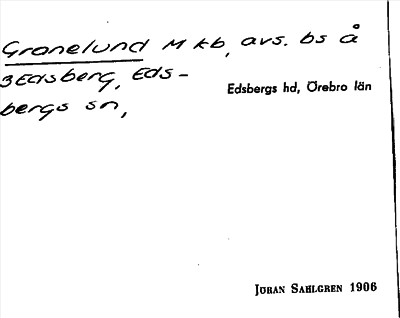 Granelund M kb, avs. bs å
3 Edsberg, Eds-
bergs sn,
Edsbergs hd, Örebro län
Jöran Sahlgren 1906